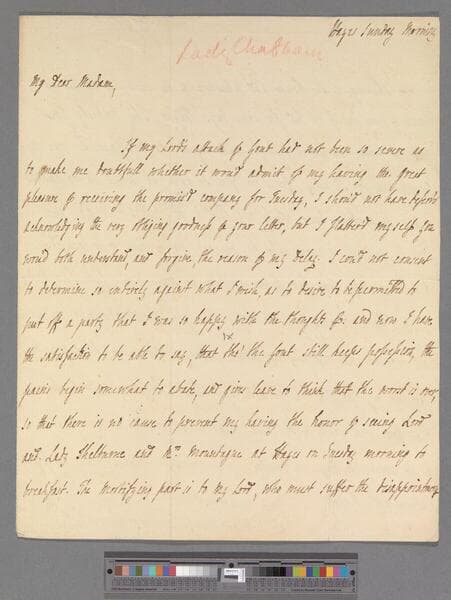 Hayes Sunday Morning
Lady Chatham
My Dear Madam,
If my Lords attack of Gout had not been so severe as
to make me doubtfull whether it wou'd admit of my having the great
pleasure of receiving the promis'd company for Tuesday, I shou'd not have defer'd
acknowledging the very obliging goodness of your letter, but I flatter'd myself you
wou'd both understand, and forgive, the reason of my Delay. I cou'd not consent
to determine so entirely against what I wish, as to desire to be permitted to
put off a party that I was so happy with the thoughts of: and now I have
the satisfaction to be able to say, that tho' the Gout still keeps possession, the
pains begin somewhat to abate, and give leave to think that the worst is over,
so that there is no cause to prevent my having the honor of seeing Lord
and Lady Shelburne and Mrs. Mountague at Hayes on Tuesday morning to
breakfast. The mortifying part is to my Lord, who must suffer the disappointment